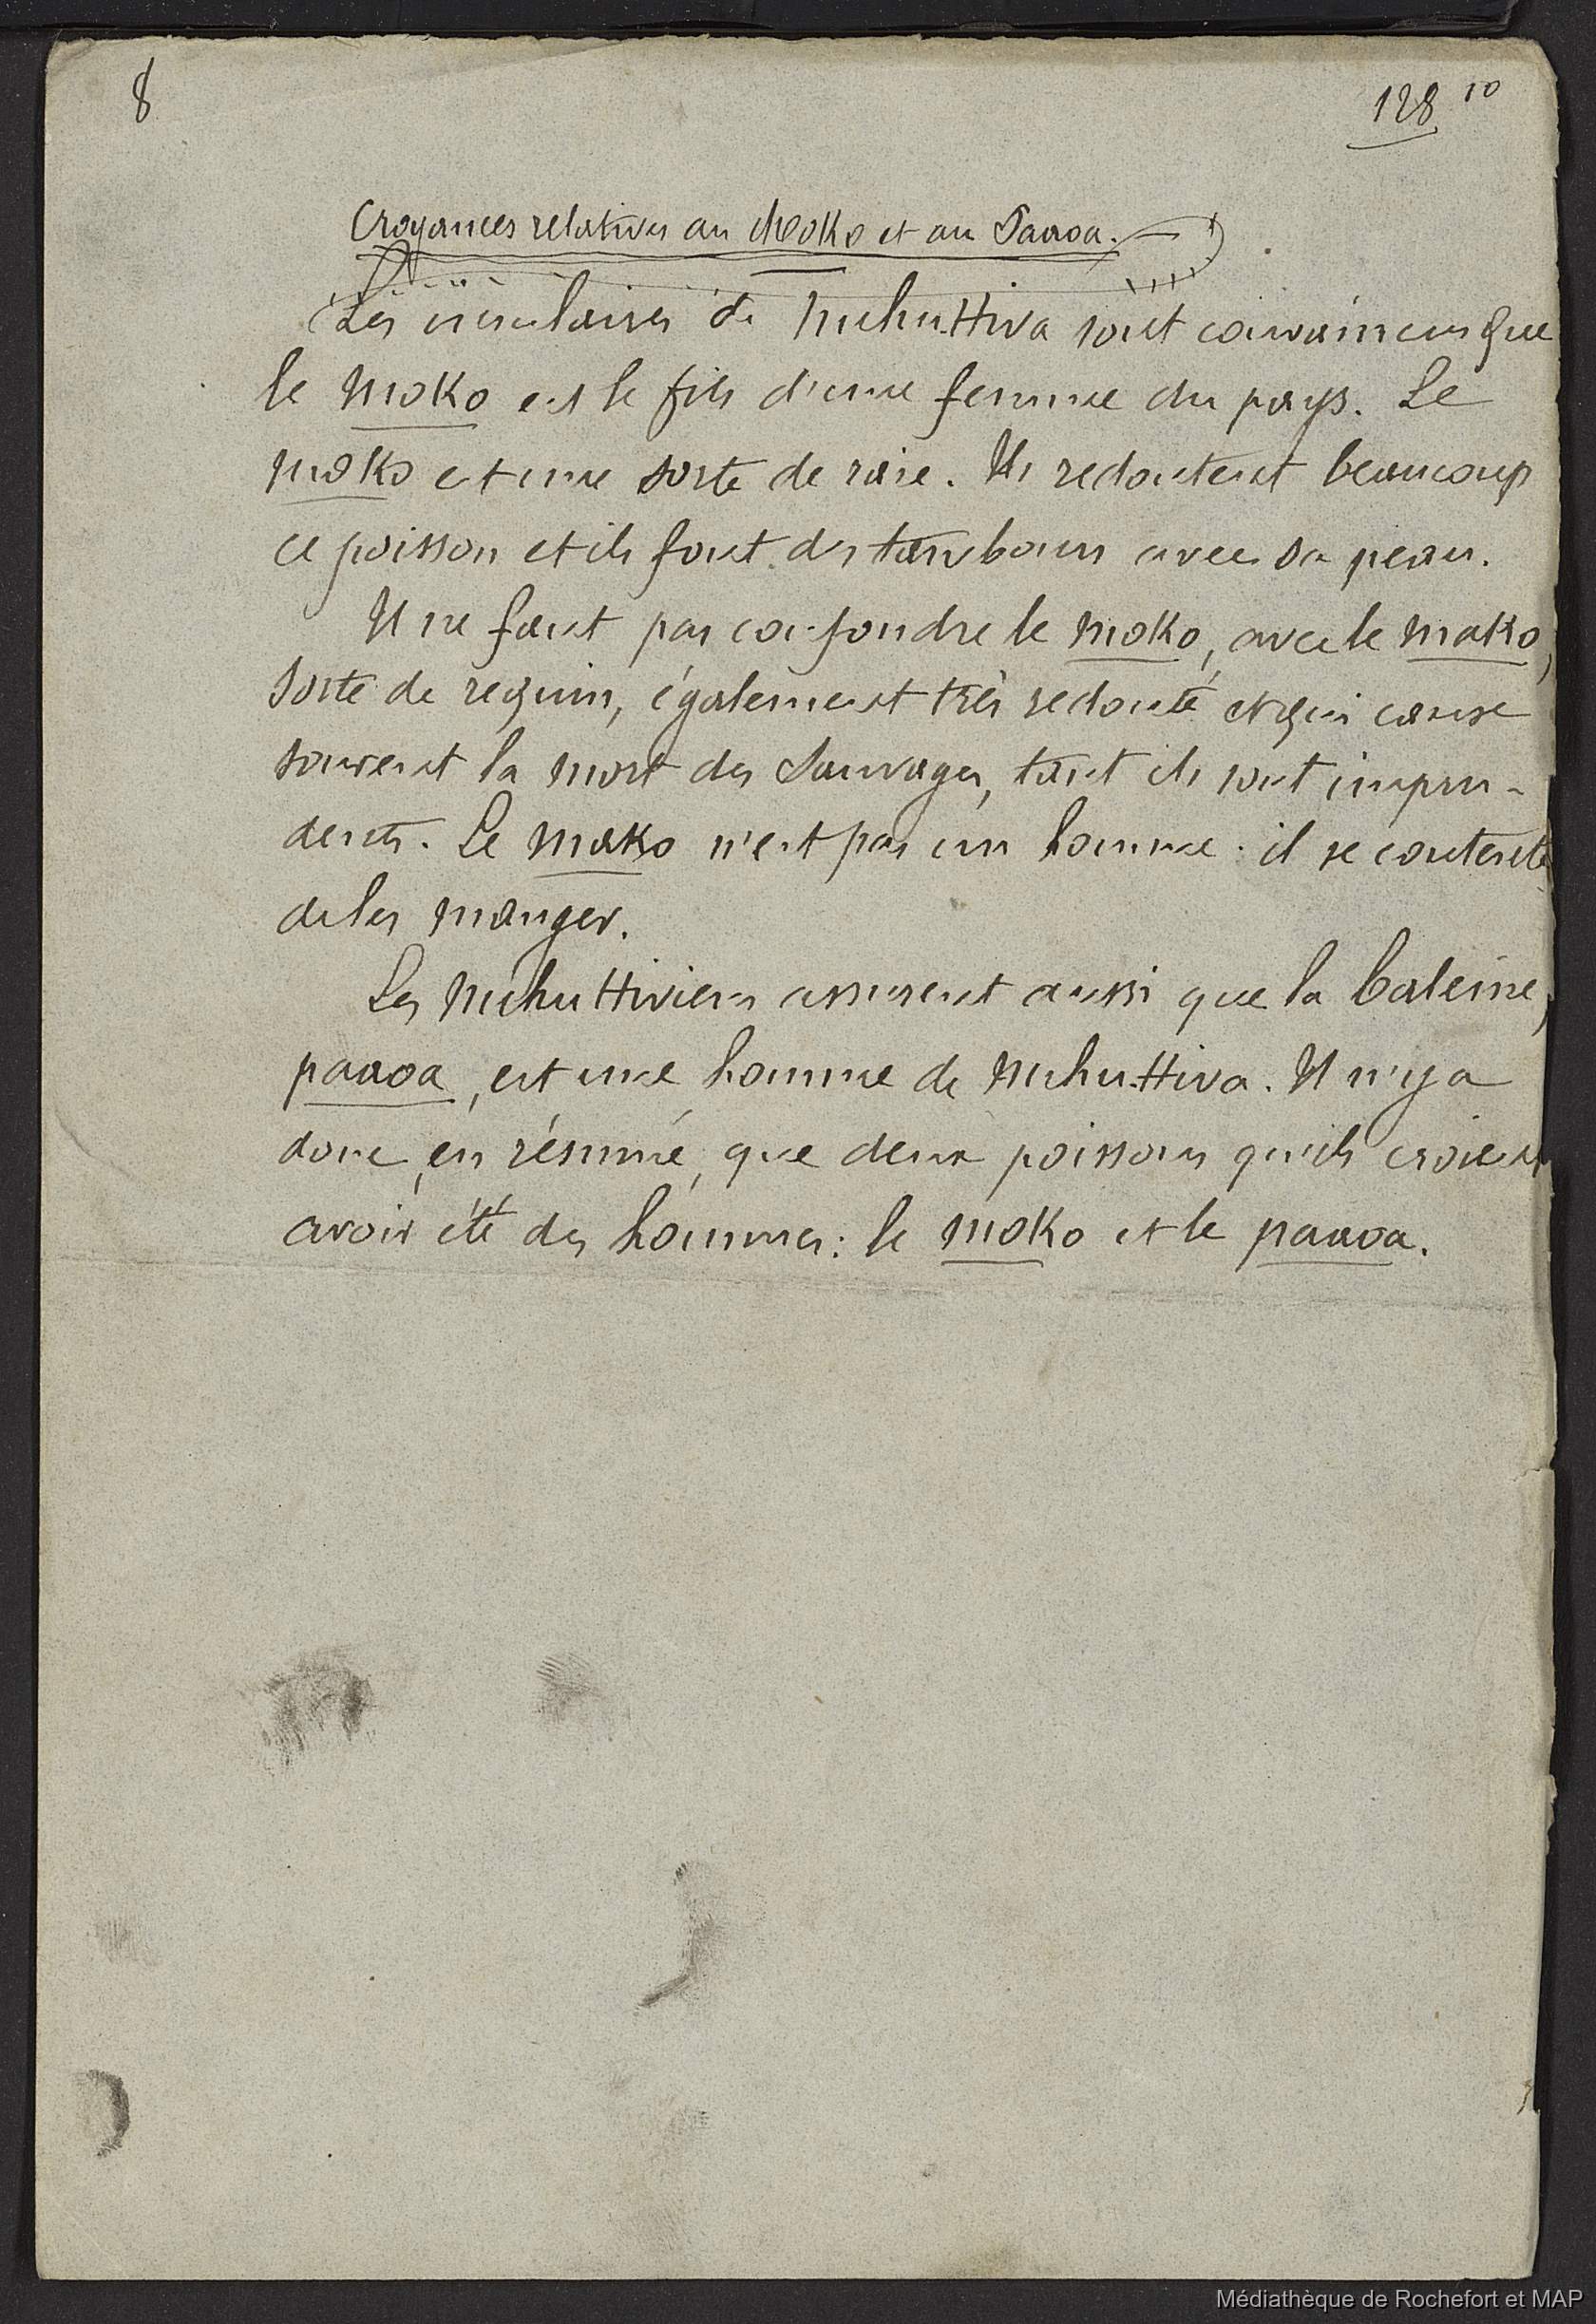 8
128 10
Croyances relatives au Moko et au Paaoa.
Les insulaires de NuhuHiva sont convaincus que
le moko est le fils d'une femme du pays. Le
moko est une sorte de raie. Ils redoutent beaucoup
ce poisson et ils font des tambours avec sa peau.
Il ne faut pas confondre le moko, avec le mako,
sorte de requin, également très redouté et qui cause
souvent la mort des Sauvages, tant ils sont impru-
dents. Le mako n'est pas un homme : il se contente
de les manger.
Les NuhuHiviens assurent aussi que la baleine,
paaoa, est une homme de NuhuHiva. Il n'y a
donc, en résumé, que deux poissons qu'ils croient
avoir été des hommes : le moko et le paaoa.
Médiathèque de Rochefort et MAP